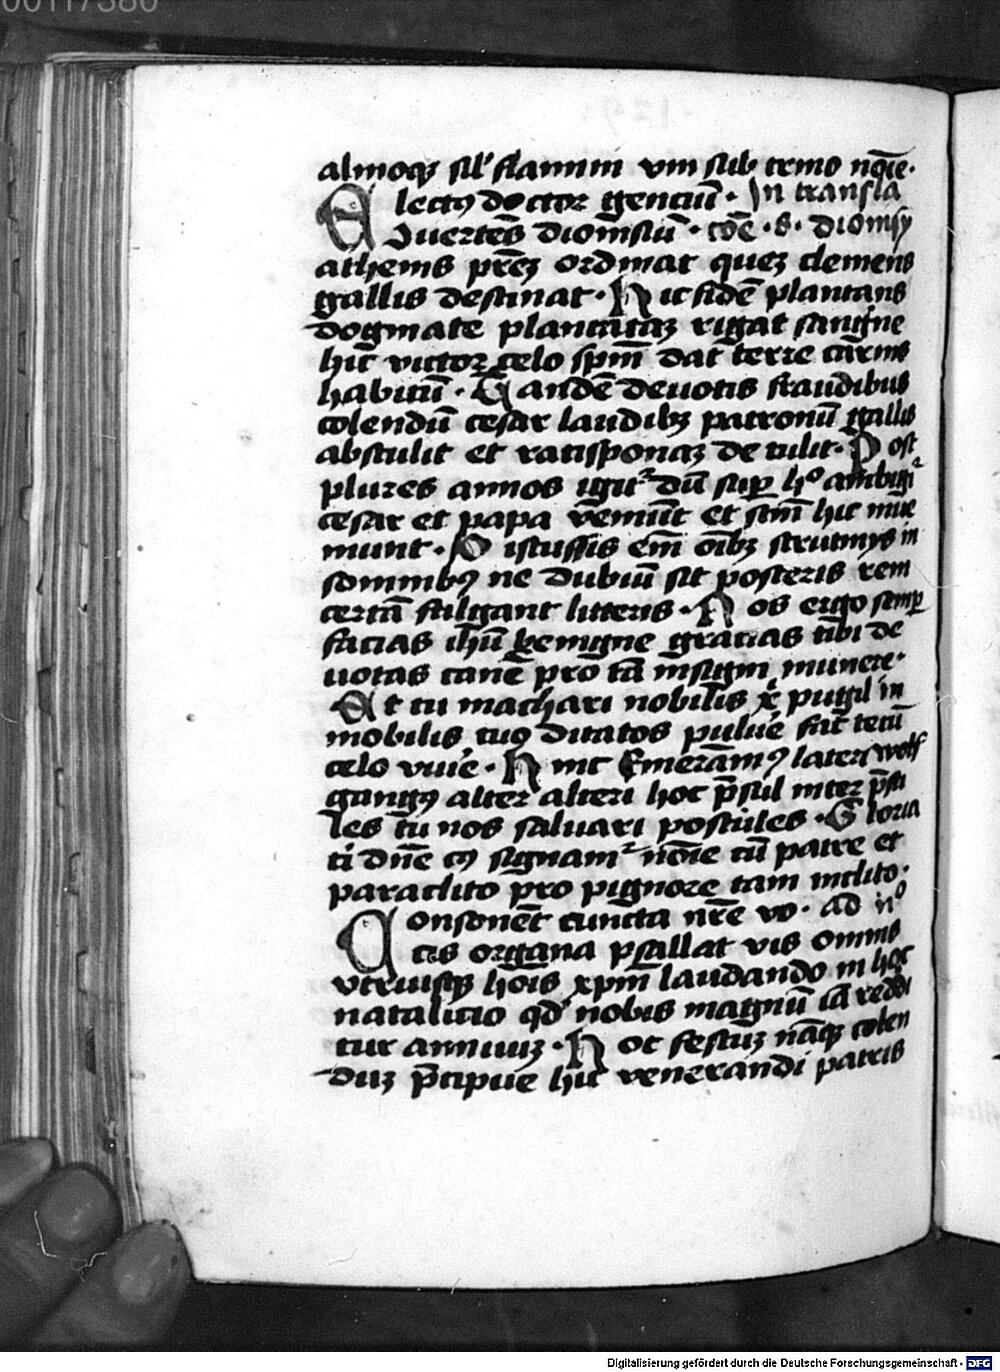 00117380
almoq₃ sil' flamim vm sub trino nōīe·
Electꝰ doctor genciū· In transla
Juertēs dionisiū· cōē ·s· dionisy
athenis prēꝫ ordinat queꝫ clemens
gallis destinat· Hic fidē plantans
dogmate plantataꝫ rigat sangine
hic victor celo spm̄ dat terre carnis
habitū· Gandē deuotis fraudibus
colendū cesar laudibꝫ patronū gallis
abstulit et ratisponaꝫ de tulit· Post
plures annos igit᷑ dū sup hº ambigit᷑
cesar et papa veniūt et scm̄ hic inue
niunt· Piscussis em̄ oībꝫ scrutinys in
somnibꝰ ne dubiū sit posteris rem
certā siligant litteris· Nos ergo semp
facias ihū benigne gracias tibi de
uotas canē pro tā insigni munere·
At tu machari nobilis xp̄i pugil in
mobilis tuo ditatos puluē fac tecū
celo viuē· Hinc Emerāmꝰ lateri wolf
gangꝰ alter alteri hoc p̄sul inter p̄su
les tu nos saluari postules· Gloria
ti dn̄e cꝰ signam᷑ nōīe cū patre et
paraclito pro pignore tam inclito·
Consonēt cuncta nr̄e vo· ad īº
cis organa psallat vis omnis
vtriusqꝫ hoīs xp̄m laudando in hoc
natalitio qd' nobis magnū iā reddi
tur annuuꝫ· Hoc festuꝫ nāqꝫ colen
duꝫ p̄cipue hic venerandi patris
Digitalisierung gefördert durch die Deutsche Forschungsgemeinschaft - DFG